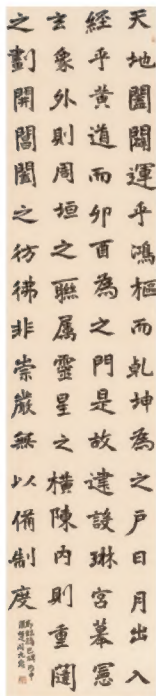 天地闔闢運乎鴻樞而乹坤為之户日月出入
經乎黄道而卯酉為之門是故建設琳宫摹憲
玄象外則周垣之聮属靈星之橫陳内則重闥
之劃開閶闔之彷彿非崇嚴無以備制度